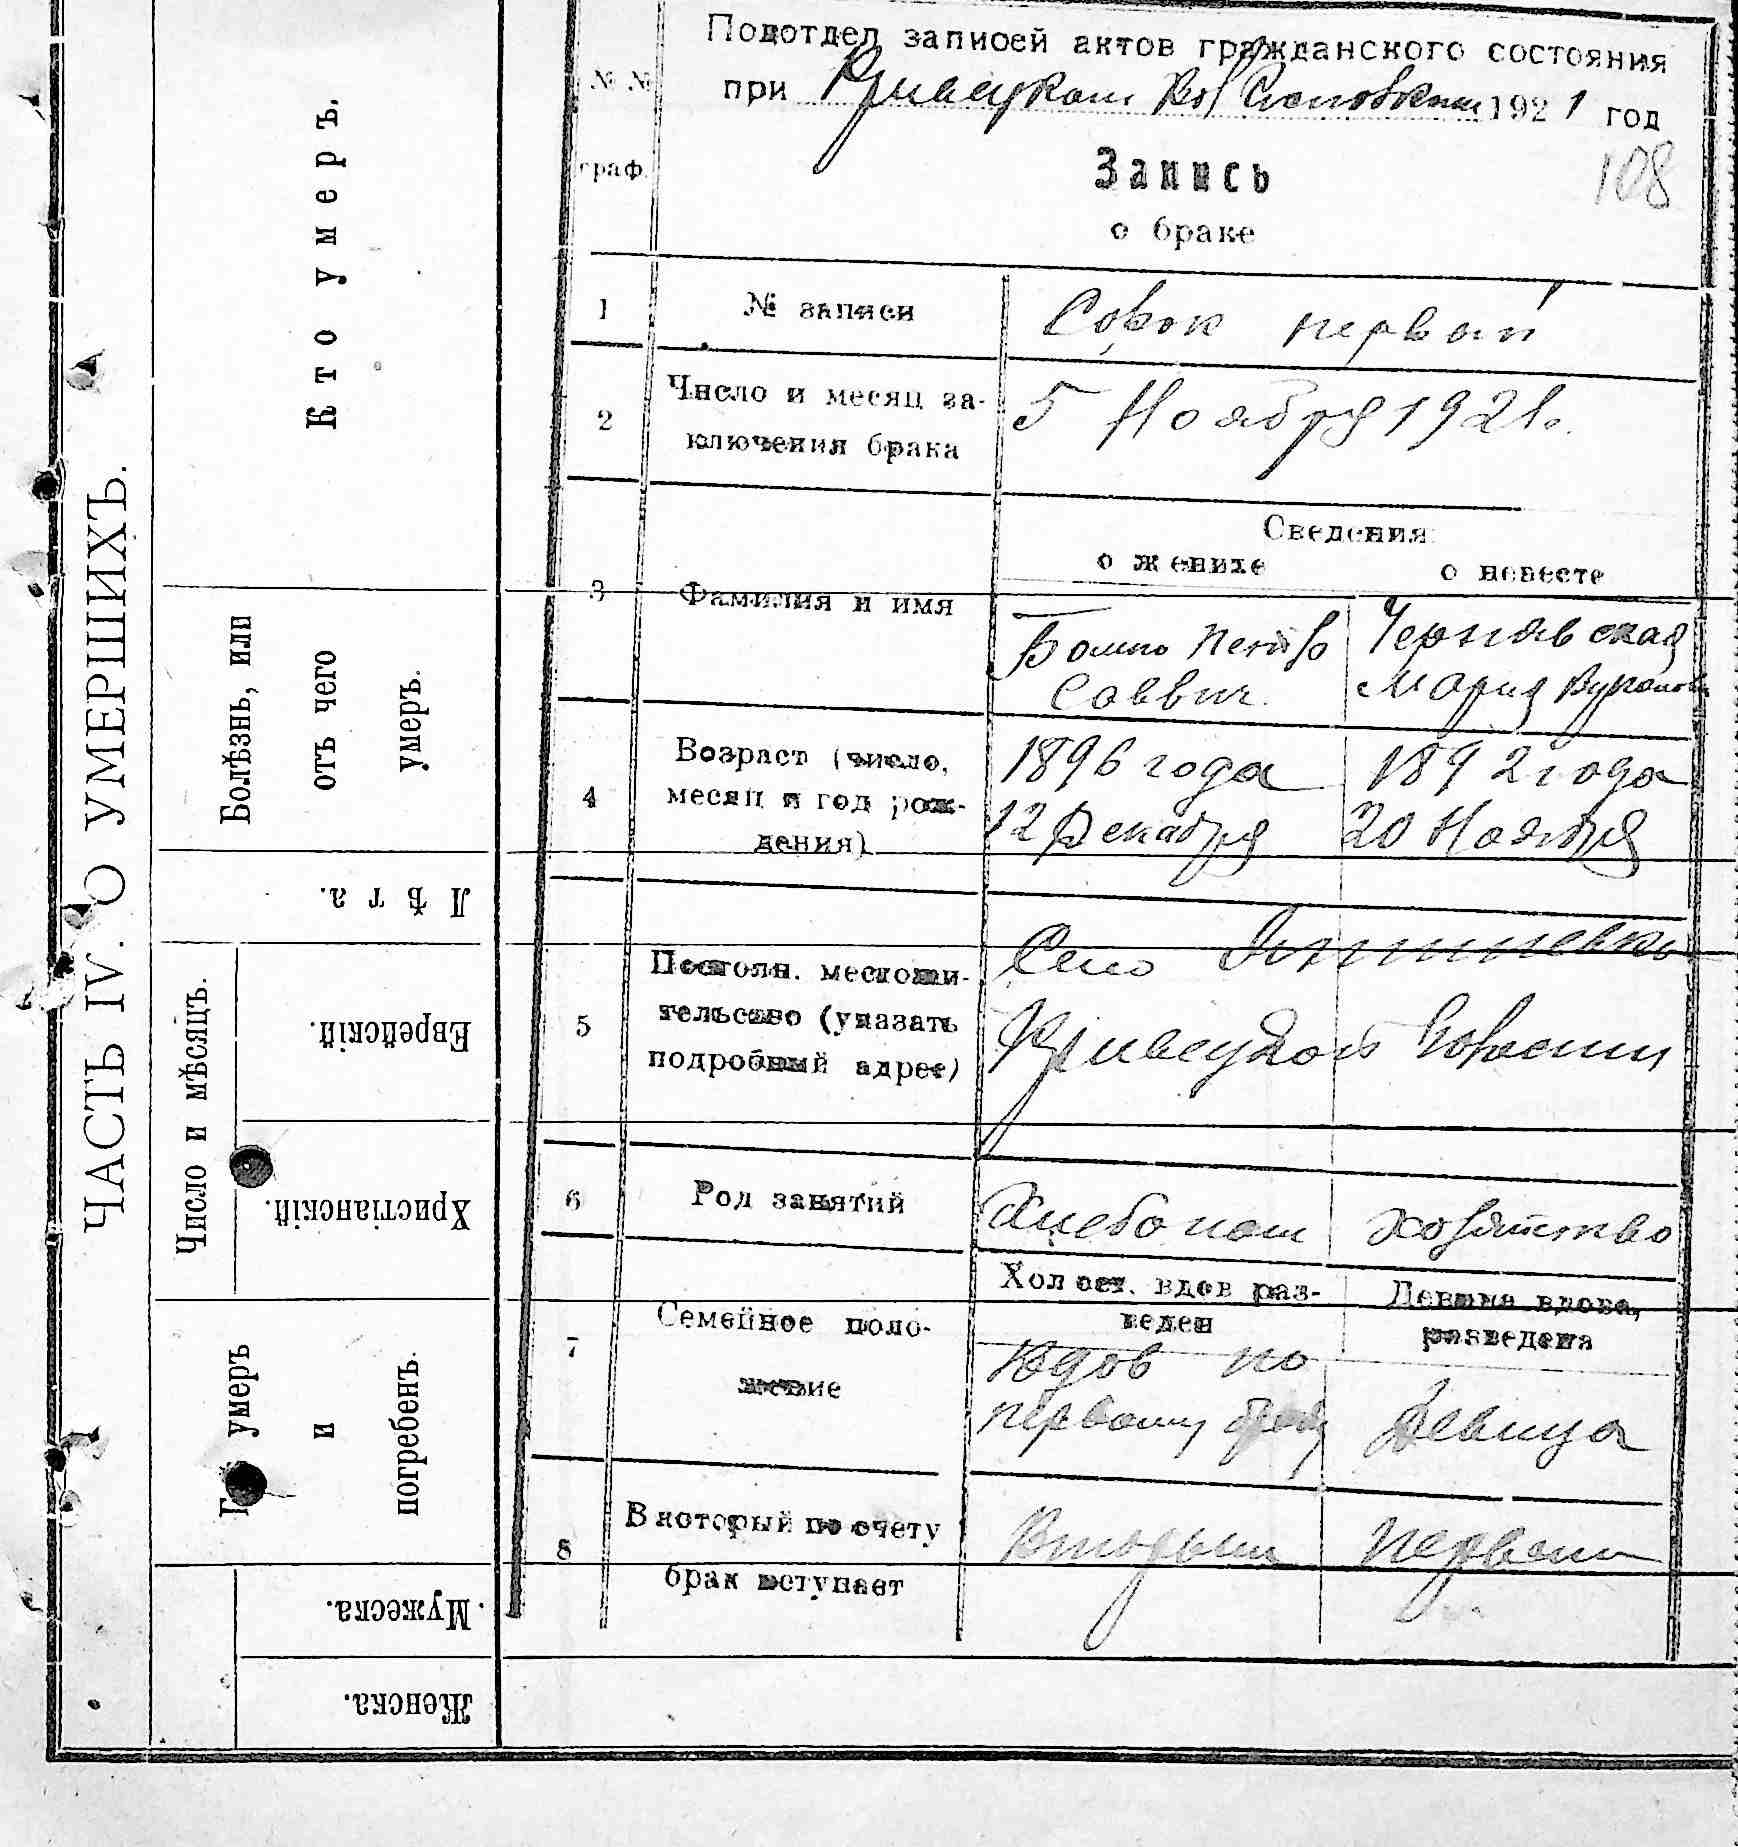 ЧАСТЬ IV. О УМЕРШИХЪ.
Кто умеръ.
Болѣзнь, или
отъ чего
умеръ.
Лѣта.
Число и мѣсяцъ.
Еврейскій.
Христіанскій.
умеръ
и
погребенъ.
Мужеска.
Женска.
Подотдел записей актов гражданского состояния
при 1921 год
108
№№
граф.
Запись
о браке
1 № записи Сорок первый
2 Число и месяц за-
ключения брака 5 Ноября 1921г.
Сведения
о женихе о невесте
3 Фамилия и имя
Петро Чернявская
Саввич Мария
4 Возраст (число,
месяц и год рож-
дения)
1896 года 1892 года
12 Декабря 20 Ноября
5 Постоян. местожи-
тельство (указать
подробный адрес)
Село
Волости
6 Род занятий Хлебопаш хозяйство
7 Семейное поло-
жение
Холост. вдов раз-
веден
Девица вдова,
разведена
Вдов по
первому браку Девица
8 В который по счету
брак вступает
Вторым первым